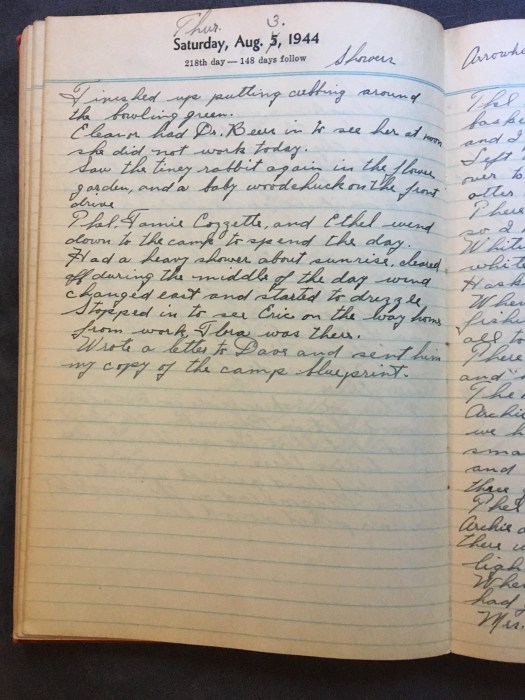 Thur. 3.
Saturday, Aug. 5, 1944
218th day—148 days follow
Showers
Finished up putting cribbing around
the bowling green.
Eleanor had Dr. Beers in to see her at noon
she did not work today.
Saw the tiney rabbit again in the flower
garden, and a baby woodchuck on the front
drive
Phel, Jamie Cozzette, and Ethel wend
down to the camp to spend the day.
Had a heavy shower about sunrise, cleared
off during the middle of the day wind
changed east and started to drizzle
Stopped in to see Eric on the way home
from work, Flora was there.
Wrote a letter to Dave and sent him
my copy of the camp blueprint.
Phel
and I
left
over to
otter
There
so I
White
white
Hask
When
fishin
all to
There
and
The
Archie
we h
sma
and
there
Phel
Archie
there w
ligh
When
had
Mrs.